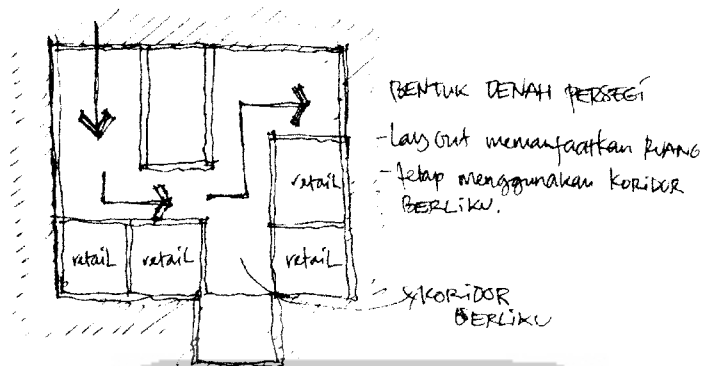 BENTUK DENAH PERSEGI
- Lay Out memanfaatkan RUANG
- tetap menggunakan KORIDOR
BERLIKU.
retail
retail retail retail
KORIDOR
BERLIKU